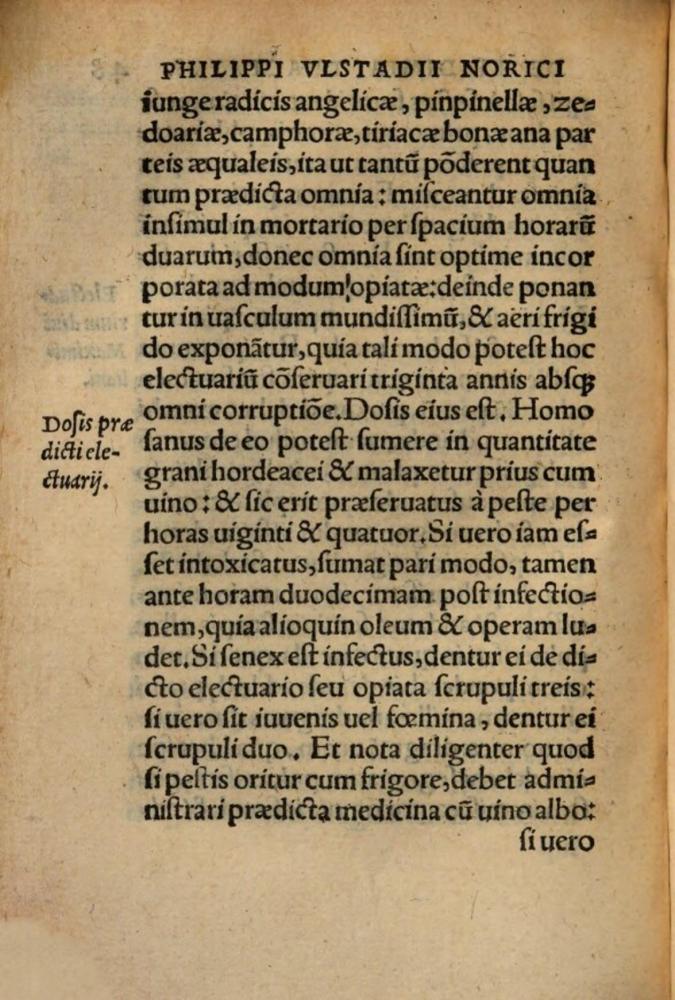 PHILIPPI VLSTADII NORICI
iunge radicis angelicæ, pinpinellæ, ze⸗
doariæ, camphoræ, tiriacæ bonæ ana par
teis æqualeis, ita ut tantū põderent quan
tum prædicta omnia: misceantur omnia
insimul in mortario per spacium horarū
duarum, donec omnia sint optime incor
porata ad modum opiatæ: deinde ponan
tur in uasculum mundissimū, & aeri frigi
do exponãtur, quia tali modo potest hoc
electuariū cõseruari triginta annis absqꝫ
omni corruptiõe. Dosis eius est. Homo
Dosis præ
dicti ele-
ctuarij.
sanus de eo potest sumere in quantitate
grani hordeacei & malaxetur prius cum
uino: & sic erit præseruatus à peste per
horas uiginti & quatuor. Si uero iam es⸗
set intoxicatus, sumat pari modo, tamen
ante horam duodecimam post infectio⸗
nem, quia alioquin oleum & operam lu⸗
det. Si senex est infectus, dentur ei de di⸗
cto electuario seu opiata scrupuli treis:
si uero sit iuuenis uel fœmina, dentur ei
scrupuli duo. Et nota diligenter quod
si pestis oritur cum frigore, debet admi⸗
nistrari prædicta medicina cū uino albo:
si uero